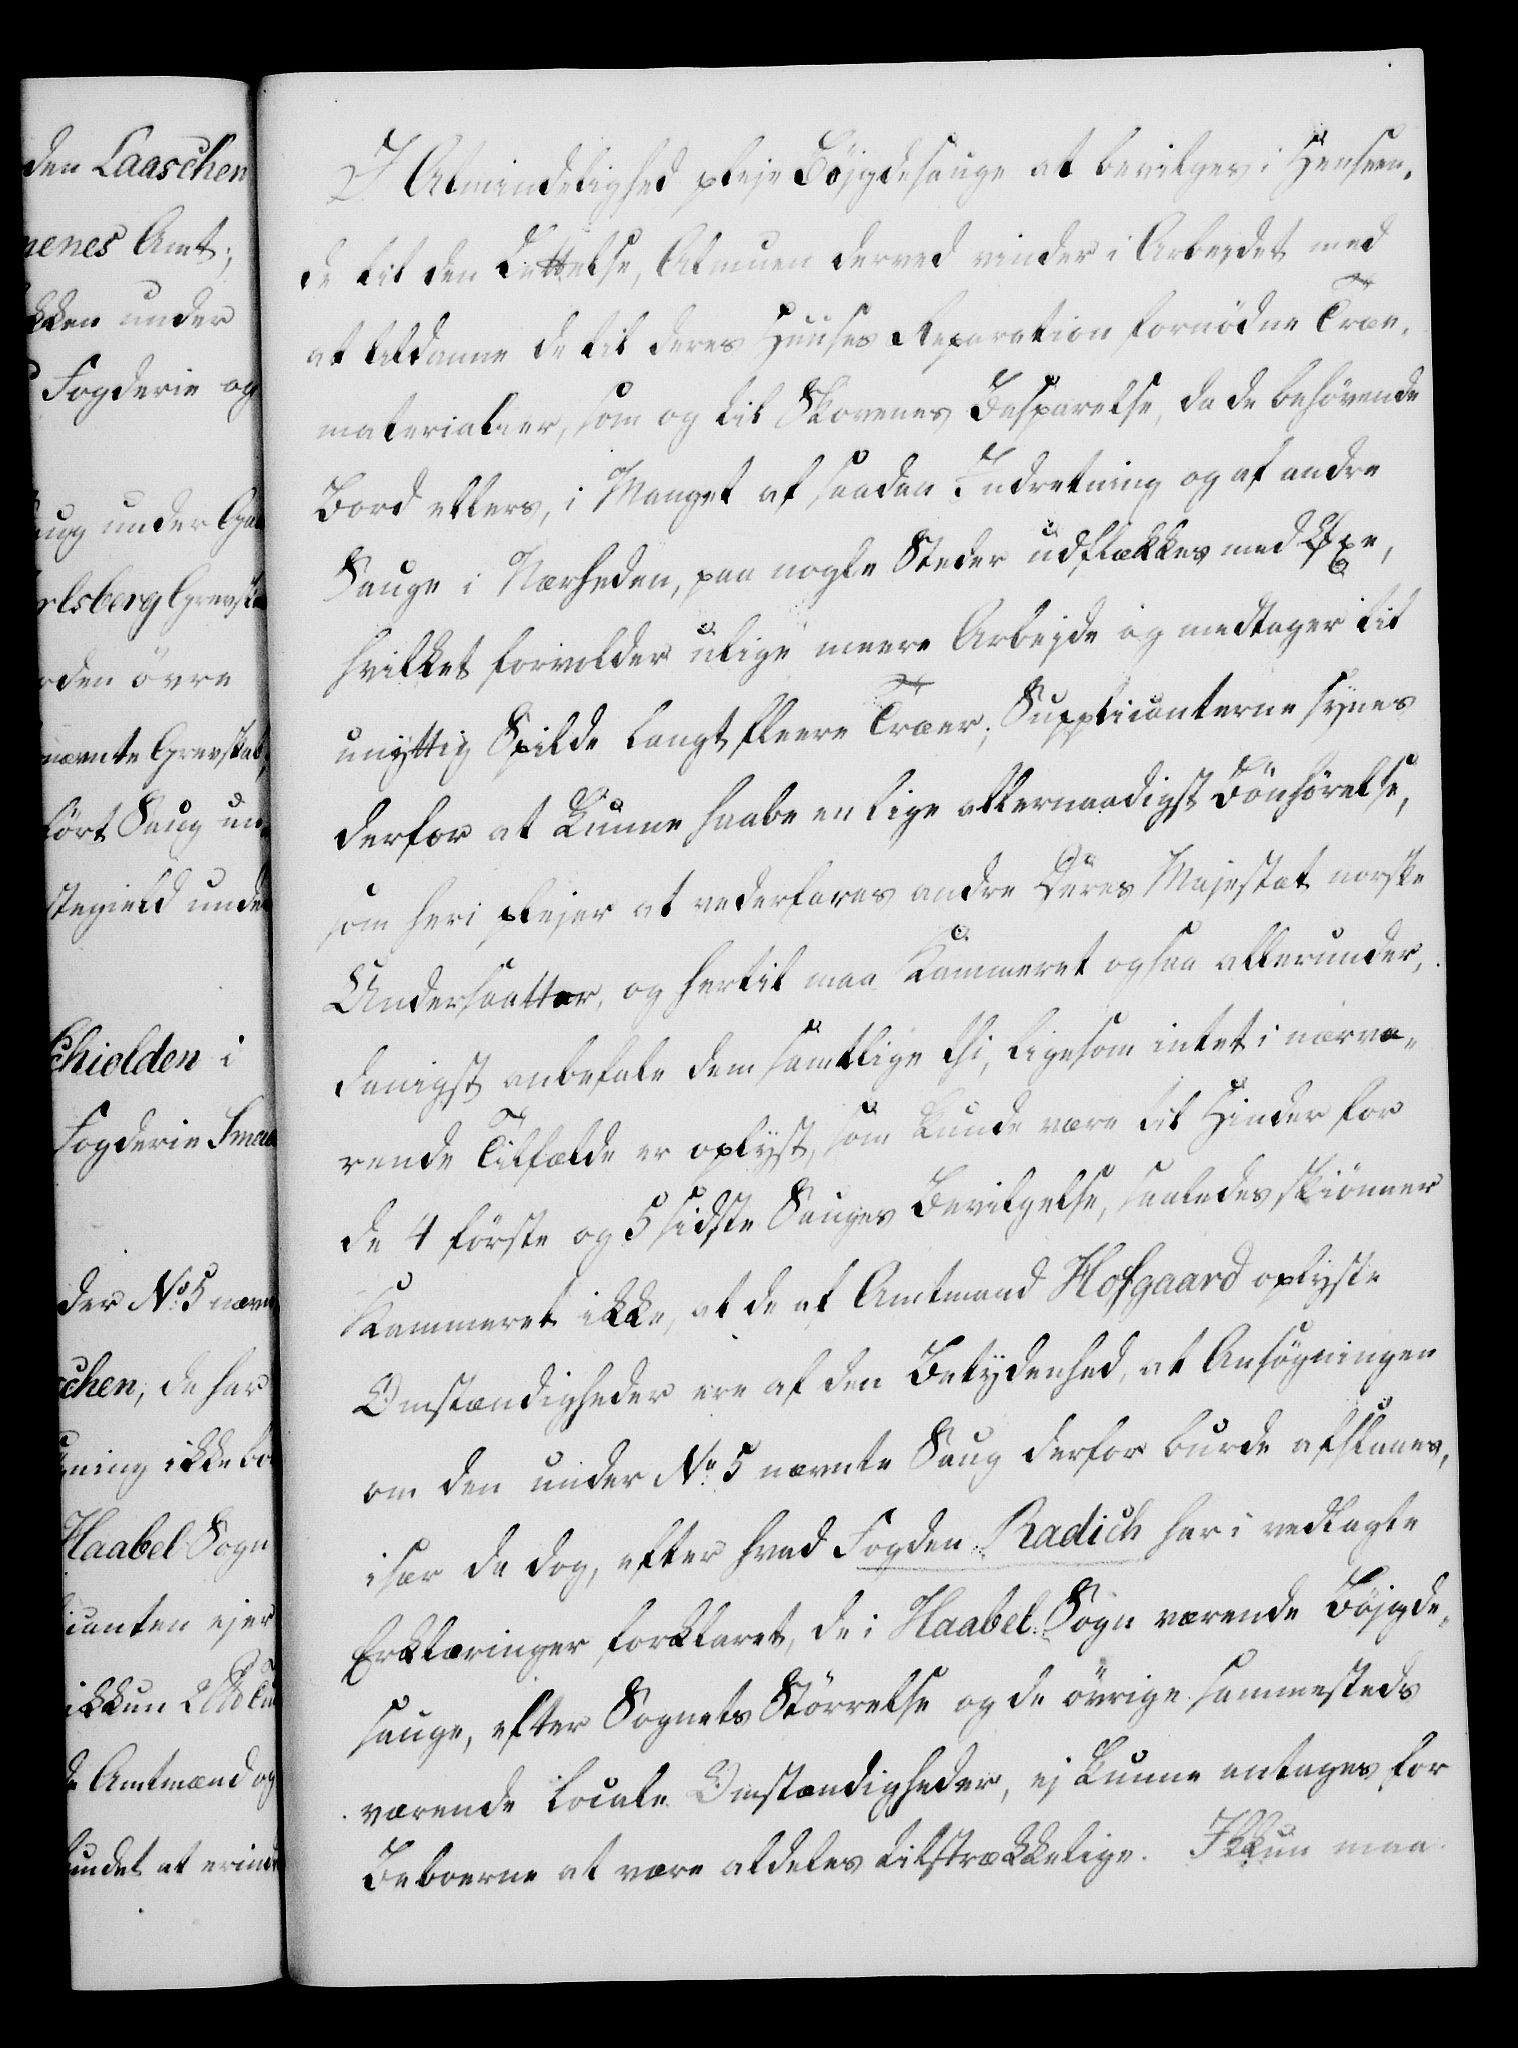 den Laaschen
nenes Amt;
kken under
Fogderie og
aug under Gre
rlsberg Grevsk
rden övre
nævnte Grevskab,
fört Saug un
stegield under
Schiolden i
Fogderie Smaa
der No 5 nævn
schen, da har
gning ikke bo
Haabel Sogn
icanten ejer
ikkun
de Amtmænd og
fundet at erindr
I Almindelighed pleje Böjgdesauge at bevilges i Henseen-
de til den Lettelse, Almuen derved vinder i Arbejdet med
at tildanne de til deres Huuses Reparation fornödne Træe-
materialier, som og til Skovenes Besparelse, da de behövende
Bord ellers, i Mangel af saadan Indretning og af andre
Sauge i Nærheden, paa nogle Steder udflækkes med Öxe,
hvilket forvolder ulige meere Arbejde og medtager til
unyttig Spilde langt fleere Træer; Supplicanterne synes
derfor at kunne haabe en lige allernaadigst Bönhörelse,
som heri plejer at vederfares andre Deres Majestæt norske
Undersaatter, og hertil maa Kammeret ogsaa allerunder-
danigst anbefale dem samtlige thi, ligesom intet i nærvæ-
rende Tilfælde er oplyst, som kunde være til Hinder for
de 4 förste og 5 sidste Sauges Bevilgelse, saaledes skiönner
Kammeret ikke, at de af Amtmand Hofgaard oplyste
Omstændigheder ere af den Betydenhed, at Ansögningen
om den under No 5 nævnte Saug derfor burde afslaaes,
især da dog, efter hvad Fogden Radich har i vedlagte
Erklæringer forklaret, de i Haabel Sogn værende Böjgde-
sauge, efter Sognets Störrelse og de övrige sammesteds
værende locale Omstændigheder, ej kunne antages for
Beboerne at være aldeles tilstrækkelige. Ikkun maa